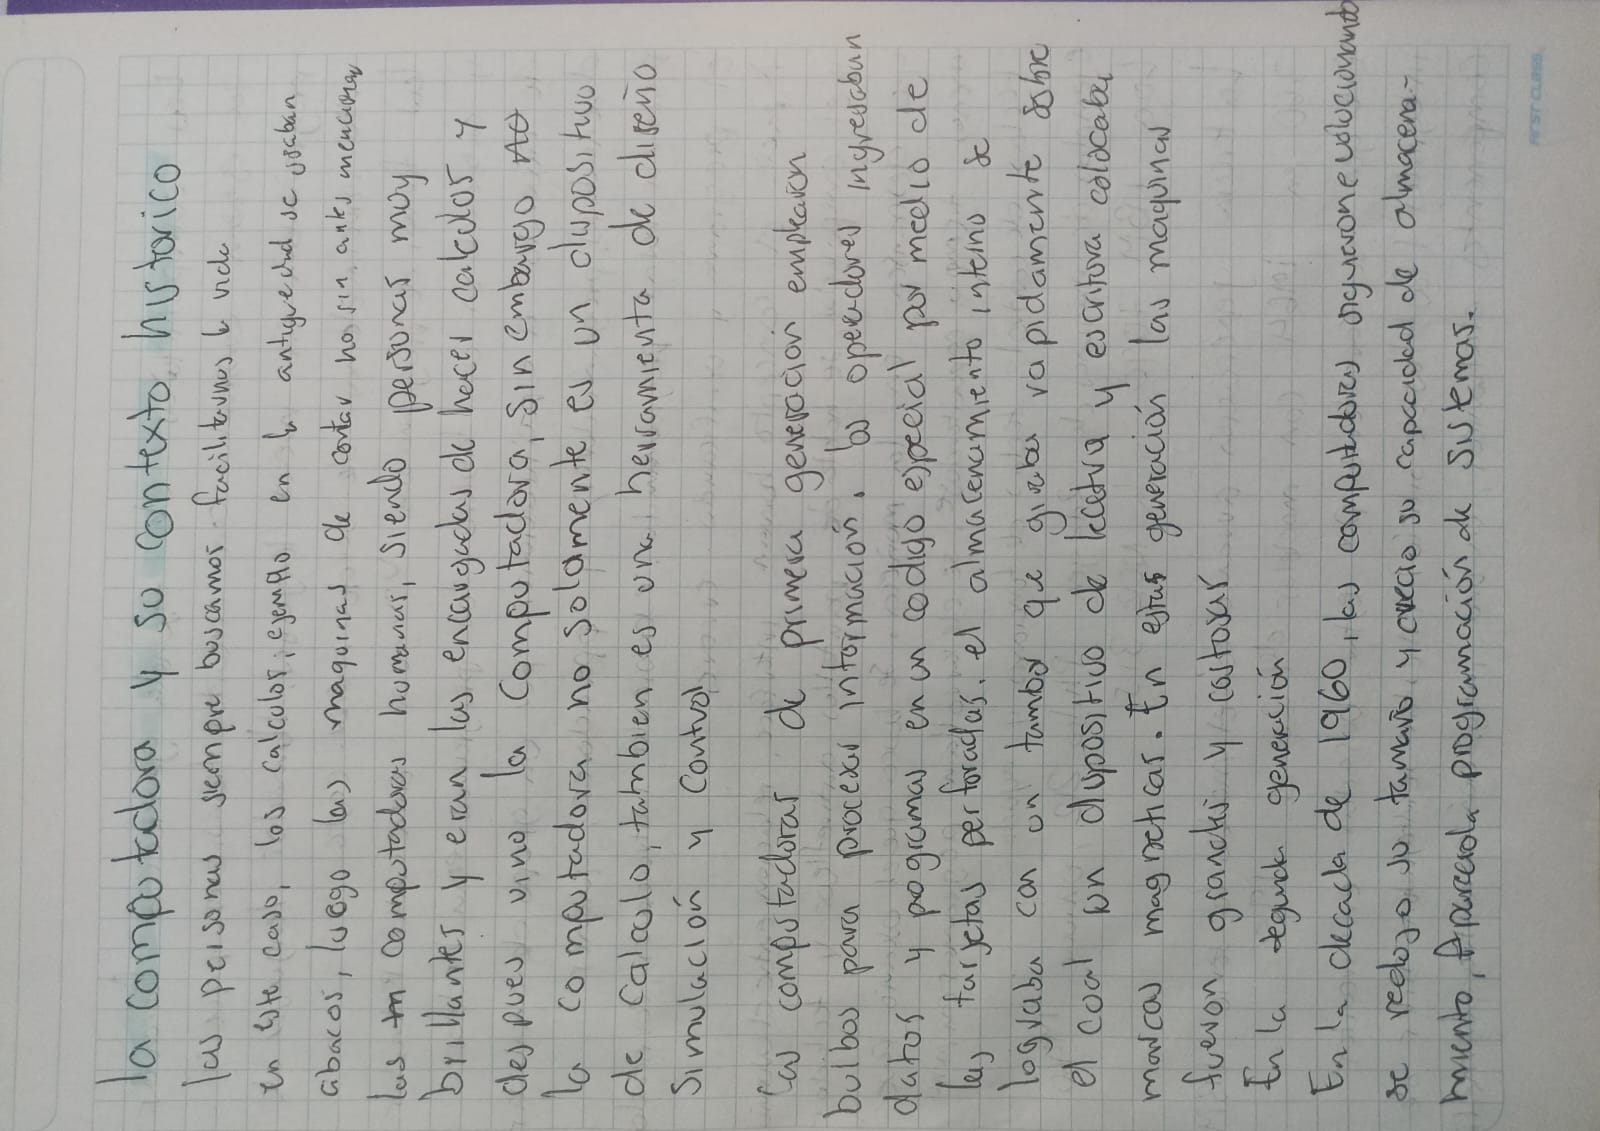 la computadora y su contexto historico
las personas siempre buscamos facilitarnos la vida
en este caso, los calculos, ejemplo en la antiguedad se usaban
abacos, luego las maquinas de contar no sin antes mencionar
las computadoras humanas, siendo personas muy
brillantes y eran las encargadas de hacer calculos y
despues vino la computadora, sin embargo
la computadora no solamente es un dispositivo
de calculo, tambien es una herramienta de diseño
simulación y control
las computadoras de primera generación emplearon
bulbos para procesar información. los operadores ingresaban
datos y programas en un codigo especial por medio de
las tarjetas perforadas. el almacenamiento interno se
lograba con un tambor que giraba rapidamente sobre
el cual un dispositivo de lectura y escritura colocaba
marcas magneticas. En estas generación las maquinas
fueron grandes y costosas
En la segunda generación
En la decada de 1960, las computadoras siguieron evolucionando
se redojo su tamaño y crecio su capacidad de almacena-
miento, Aparecio la programación de sistemas.
FIRST CLASS